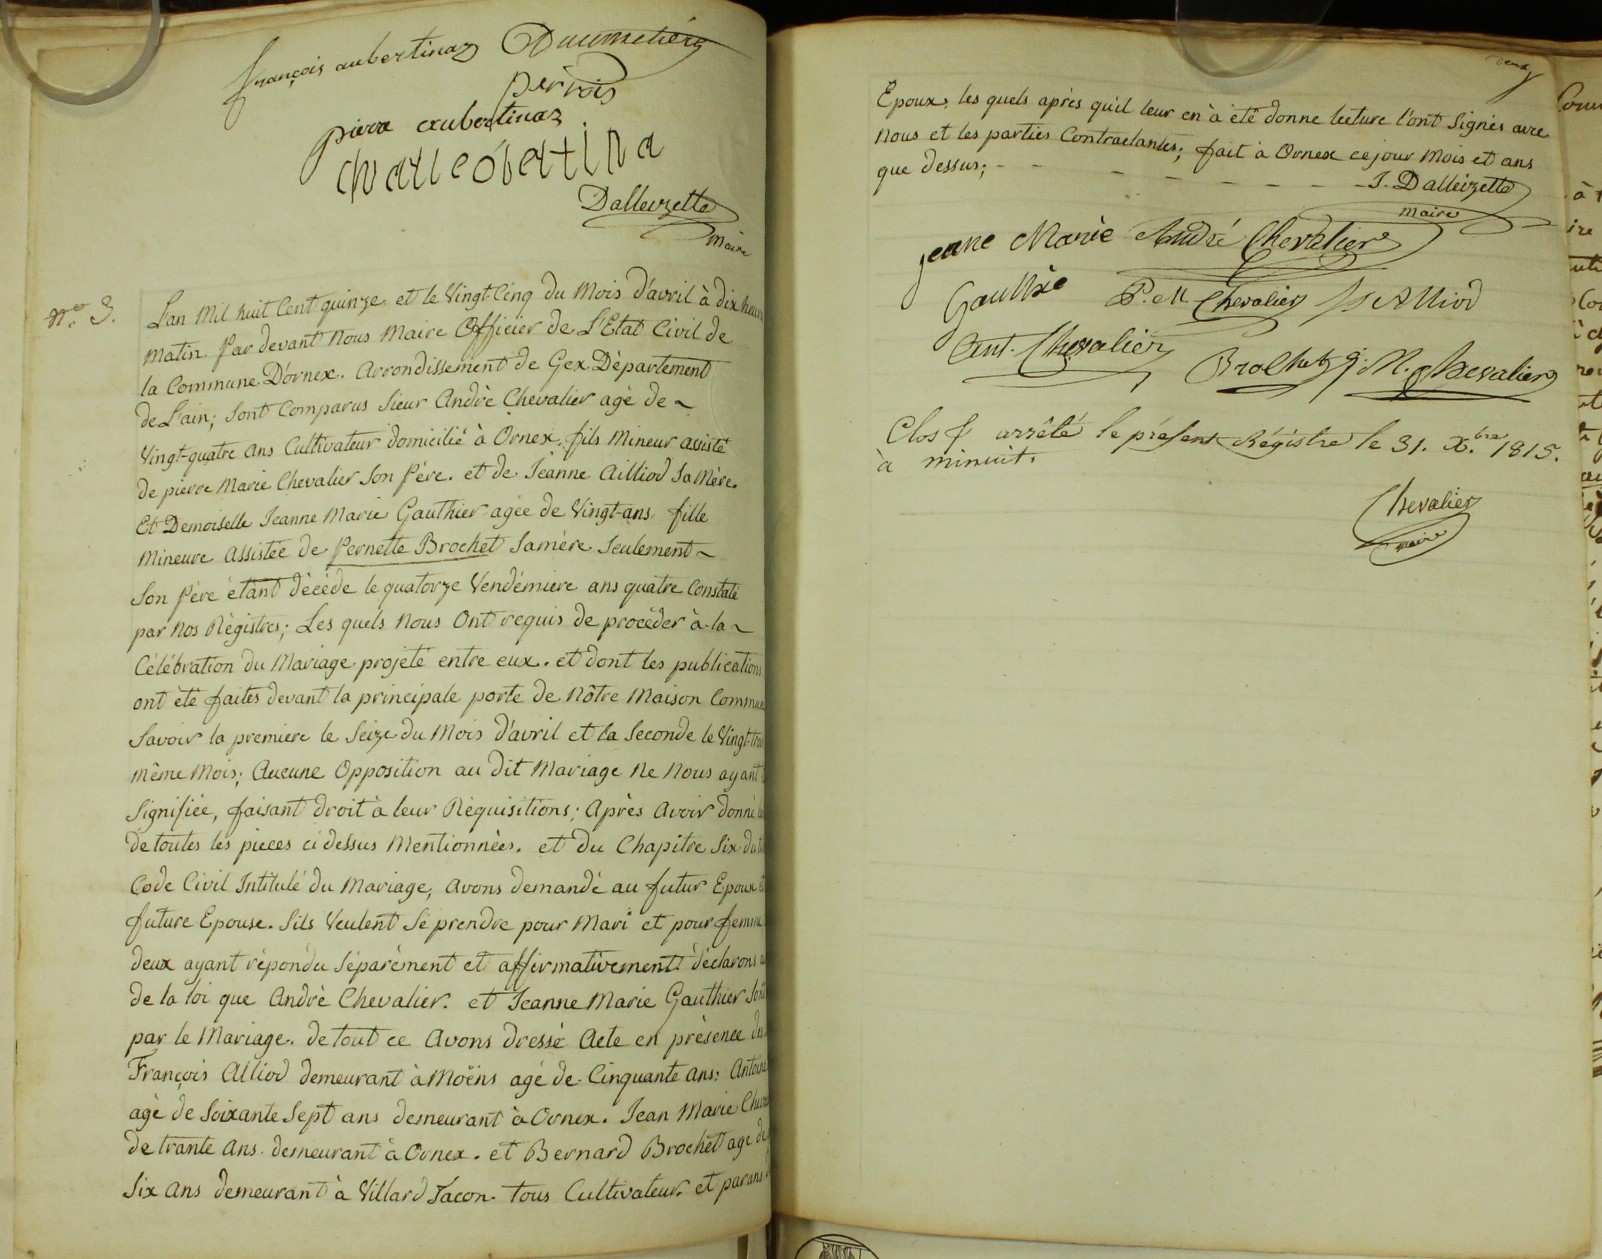 françois aubertinaz Dunmetiérg
pervois
pierre aubertinaz
Dalleizette
maire
N.º 3.
L'an Mil huit Cent quinze et le Vingt-Cinq du Mois D'avril à dix heur
Matin. Par devant Nous Maire Officier de L'Etat Civil de
la Commune D'ornex. Arrondissement de Gex Dèpartement
de L'ain; Sont Comparus Sieur Andrè Chevalier agé de ~
Vingt-quatre ans Cultivateur domicilié à Ornex, fils Mineur assisté
de pierre Marie Chevalier Son Pére. et de Jèanne Ailliod Sa Mère.
Et Demoiselle Jeanne Marie Gauthier agée de Vingt-ans fille
Mineure Assistée de Pernette Brochet Samère Seulement ~
Son Pére étant dècède le quatorze Vendémiere ans quatre Constaté
par Nos Règistres; Les quels Nous Ont requis de procèder à-la ~
Célébration du Mariage projeté entre eux. et dont les publications
ont été faites devant la principale porte de Nôtre Maison Commune
Savoir la premiere le Seize du Mois d'avril et la Seconde le Vingt-troi
même Mois; Aucune Opposition au dit Mariage Ne Nous ayant
Signifiée, faisant droit à leur Réquisitions; Après Avoir donné
de toutes les pieces ci dessus Mentionnées. et du Chapitre Six du
Code Civil Intitulé du Mariage, avons demandé au futur Epoux
future Epouse. Sils Veulent Sé prendre pour Mari et pour femme
deux ayant répondu Séparément et affirmativement déclarons
de la loi que Andrè Chevalier. et Jeanne Marie Gauthier Sont
par le Mariage. de tout ce Avons dressé Acte en prèsence de
François Alliod demeurant à Moëns agé de Cinquante ans; Antoine
agé de Soixante Sept ans demeurant à Ornex. Jean Marie Cheva
de trante Ans demeurant à Ornex. et Bernard Brochet age de
Six ans demeurant à Villard Tacon. tous Cultivateur. et parans
deux
Epoux, les quels après qu'il leur en à été donne lecture l'ont Signès avec
Nous et les parties Contractantes; fait à Ornex ce jour Mois et ans
que dessus; - - - - - - - - J. Dalleizette
maire
jeanne Marie André Chevalier
Gaultiée P. M Chevalier f Alliod
Ant. Chevalier Brochet J. M. Chevalier
Clos & arrêté le présent Régistre le 31. X.bre 1815.
à minuit.
Chevalier
maire